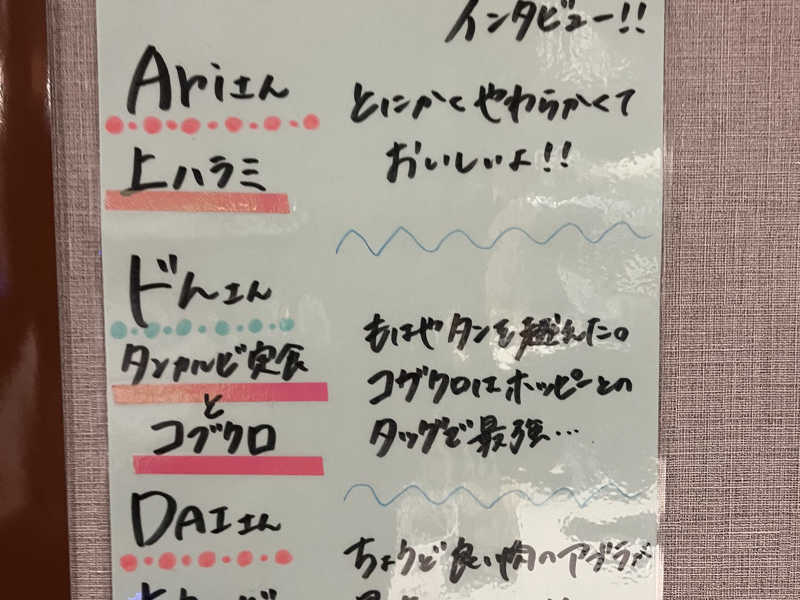 インタビュー!!
Ariさん
とにかくやわらかくて
おいしいよ!!
上ハラミ
どんさん
もはやタンを越えた。
タンカルビ定食
と
コブクロ
コブクロはホッピーとの
タッグで最強…
DAIさん
ちょうど良い肉のアブラが